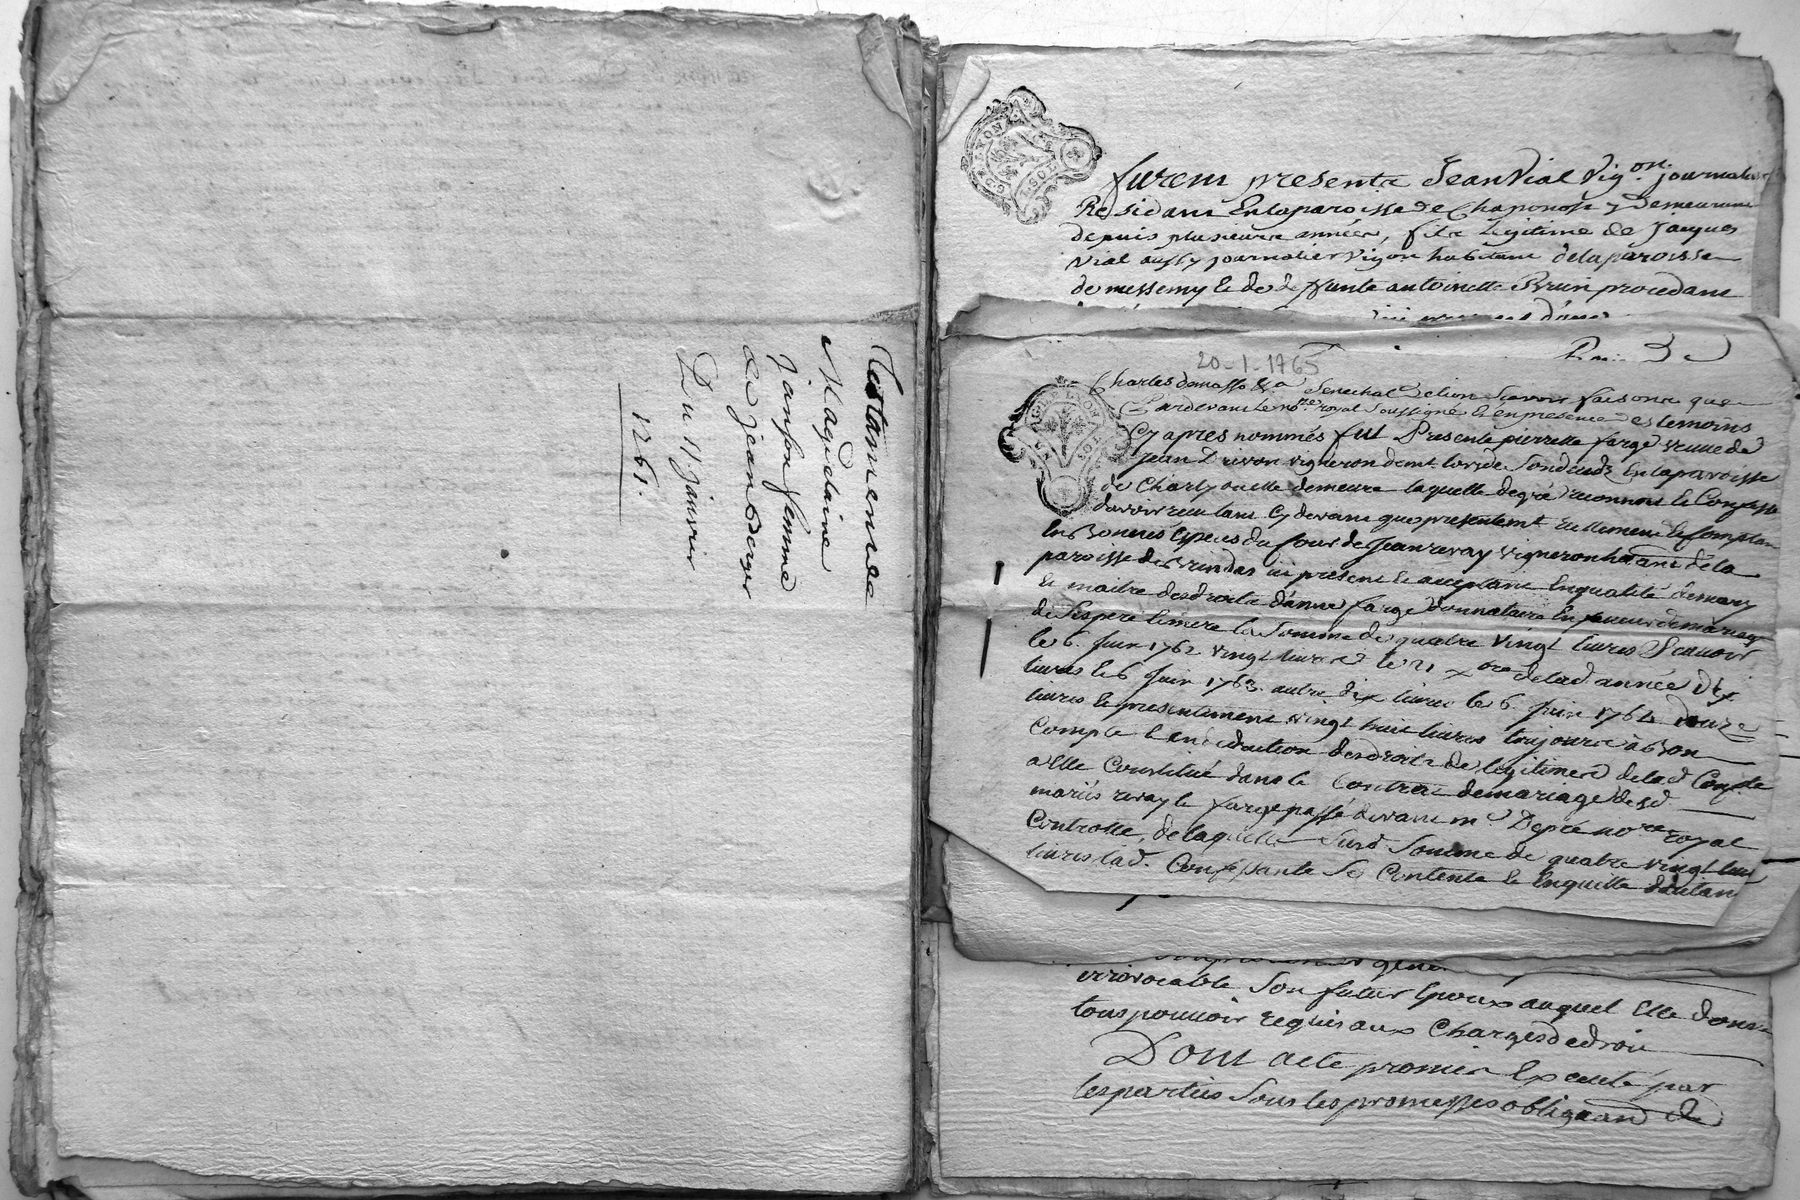 Testament de
Magdelaine
janson femme
de jean Berger
Du 11 janvier
1761.
G. DE LYON
2 SOLS
furent presents Jean Vial Vig.on journalier
Residant En la paroisse de Chaponost y Demeurant
depuis plusieurs années, fils Legitime de jacques
vial aussy journalier vigon habitant de la paroisse
de messemy Et de de ffunte antoinette Brun procedant
20-1-1765
Charles de Senechal de lion Savoir faisons que
Pardevant le no.re royal Soussigné Et en presence des temoins
Cy apres nommés fut Presente pierrette farge veuve de
jean Drivon vigneron En la paroisse
de Charly ou elle demeure laquelle de gré reconnoit Et Confesse
d'avoir reçu tant Cy devant que presentemt reellement Et Comptant
En Bonnes Especes du Cour de Jean revay vigneron habitant de la
paroisse de Brindas ici present Et acceptant En qualité de mary
Et maitre des droits d'anne farge donnataire En faveur de mariage
de Ses pere Et mere la Somme de quatre vingt livres Scavoir
le 6. Juin 1762 vingt livres le 21 xbre de lad année dix
livres le 6 Juin 1763. autre dix livres le 6. Juin 1764 douze
livres Et presentement vingt huit livres toujours à Bon
Compte Et en deduction des droits de legitime de lad Confte
a Elle Constitué dans le Contrat de mariage desd
mariés revay Et farge passé devant me Depré nore royal
Controllé, de laquelle Susd Somme de quatre vingt
livres lad. Confessante Se Contente Et En quitte
irrevocable Son futur Epoux auquel Elle donne
tous pouvoir requis aux Charges de droit
Dont acte promis Executé par
les parties Sous les promesses obligeand &c